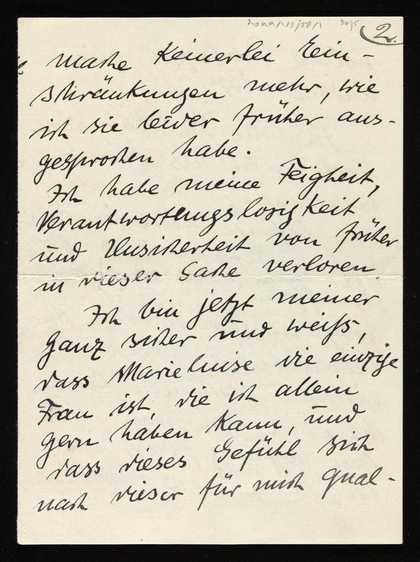 2.
mache Keinerlei Ein-
schränkungen mehr, wie
ich sie leider früher aus-
gesprochen habe.
Ich habe meine Feigheit,
Verantwortungslosigkeit
und Unsicherheit von früher
in dieser Sache verloren.
Ich bin jetzt meiner
ganz sicher und weiß,
dass Marieluise die einzige
Frau ist, die ich allein
gern haben kann, und
dass dieses Gefühl sich
nach dieser für mich qual-